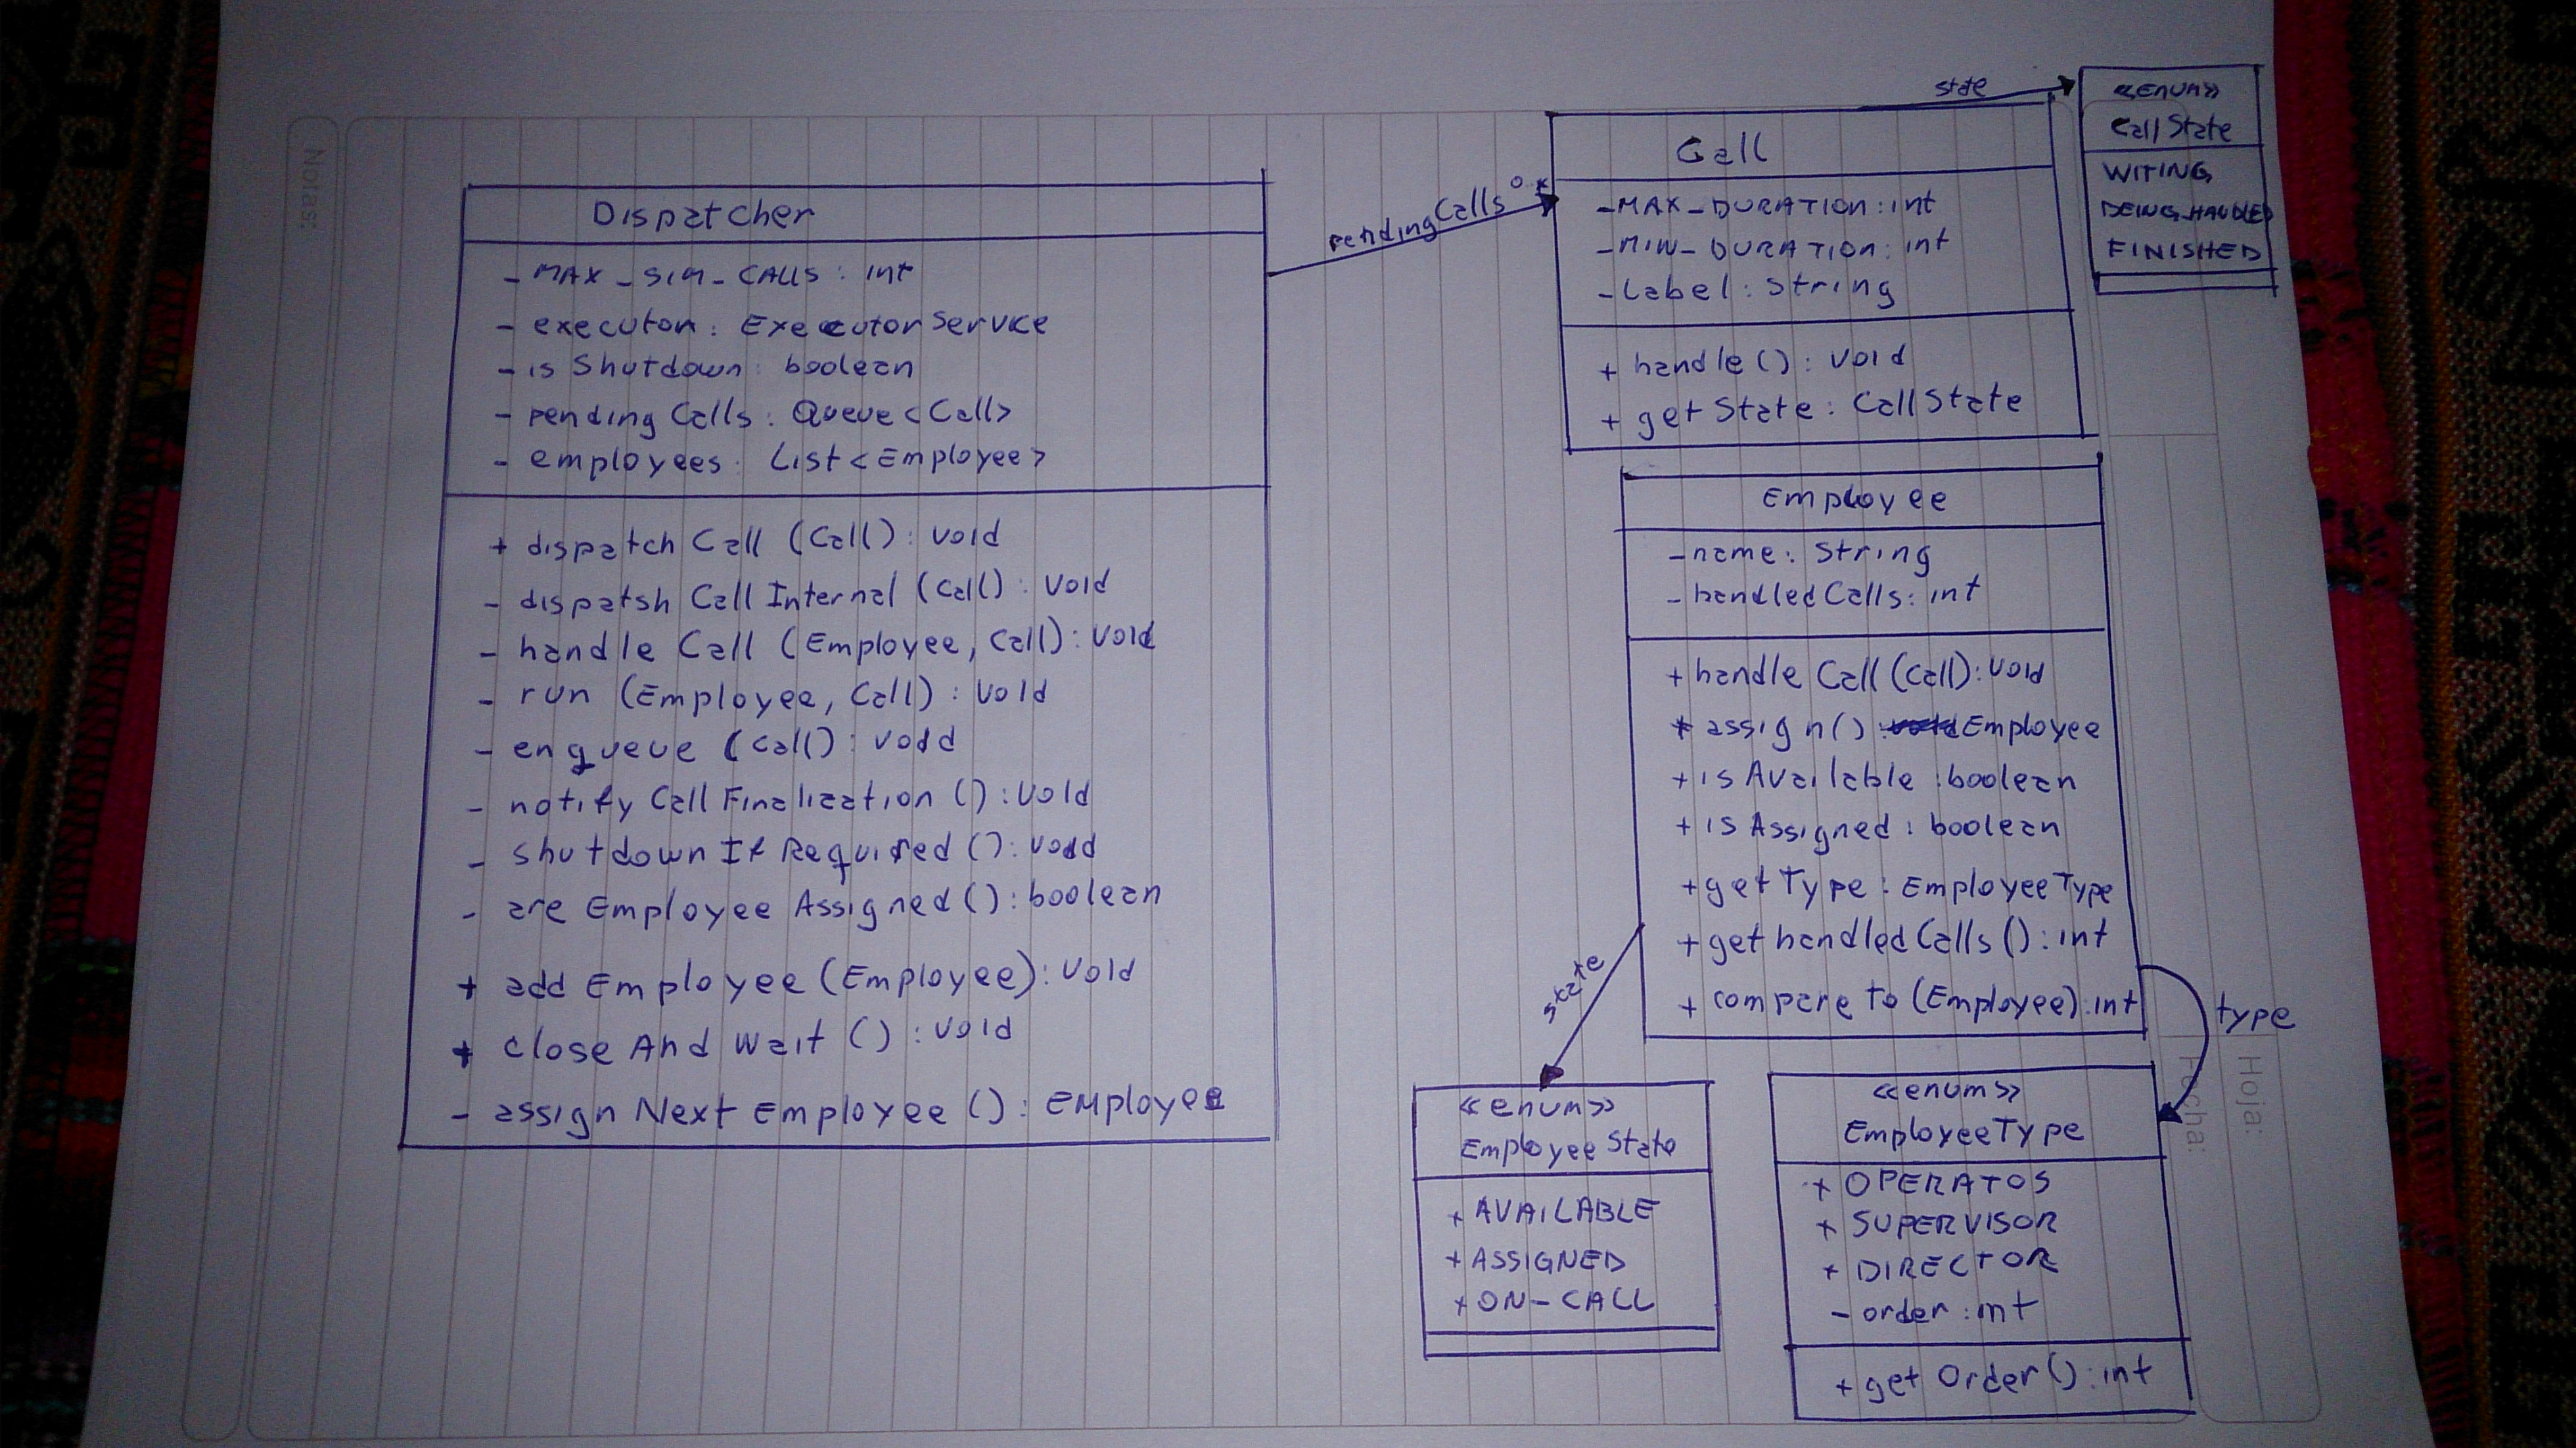 Notas:
Dispatcher
- MAX_SIM_CALLS: int
- executor: ExecutorService
- isShutdown: boolean
- pendingCalls: Queue<Call>
- employees: List<Employee>
+ dispatchCall (Call): void
- dispatshCallInternal (Call): void
- handleCall (Employee, Call): void
- run (Employee, Call): void
- enqueue (Call): void
- notifyCallFinalization (): void
- shutdownIfRequired (): void
- areEmployeeAssigned (): boolean
+ addEmployee (Employee): void
+ closeAndWait (): void
- assignNextEmployee (): Employee
pendingCalls 0..*
Call
- MAX_DURATION: int
- MIN_DURATION: int
- Label: String
+ handle(): void
+ getState: CallState
state
<<enum>>
CallState
WITING,
BEING_HANDLED
FINISHED
Employee
- name: String
- handledCalls: int
+ handleCall (Call): void
+ assign(): Employee
+ isAvailable: boolean
+ isAssigned: boolean
+ getType: EmployeeType
+ gethandledCalls (): int
+ compareTo (Employee): int
state
type
<<enum>>
EmployeeState
+ AVAILABLE
+ ASSIGNED
+ ON-CALL
<<enum>>
EmployeeType
+ OPERATOS
+ SUPERVISOR
+ DIRECTOR
- order: int
+ getOrder(): int
Hoja:
Fecha: